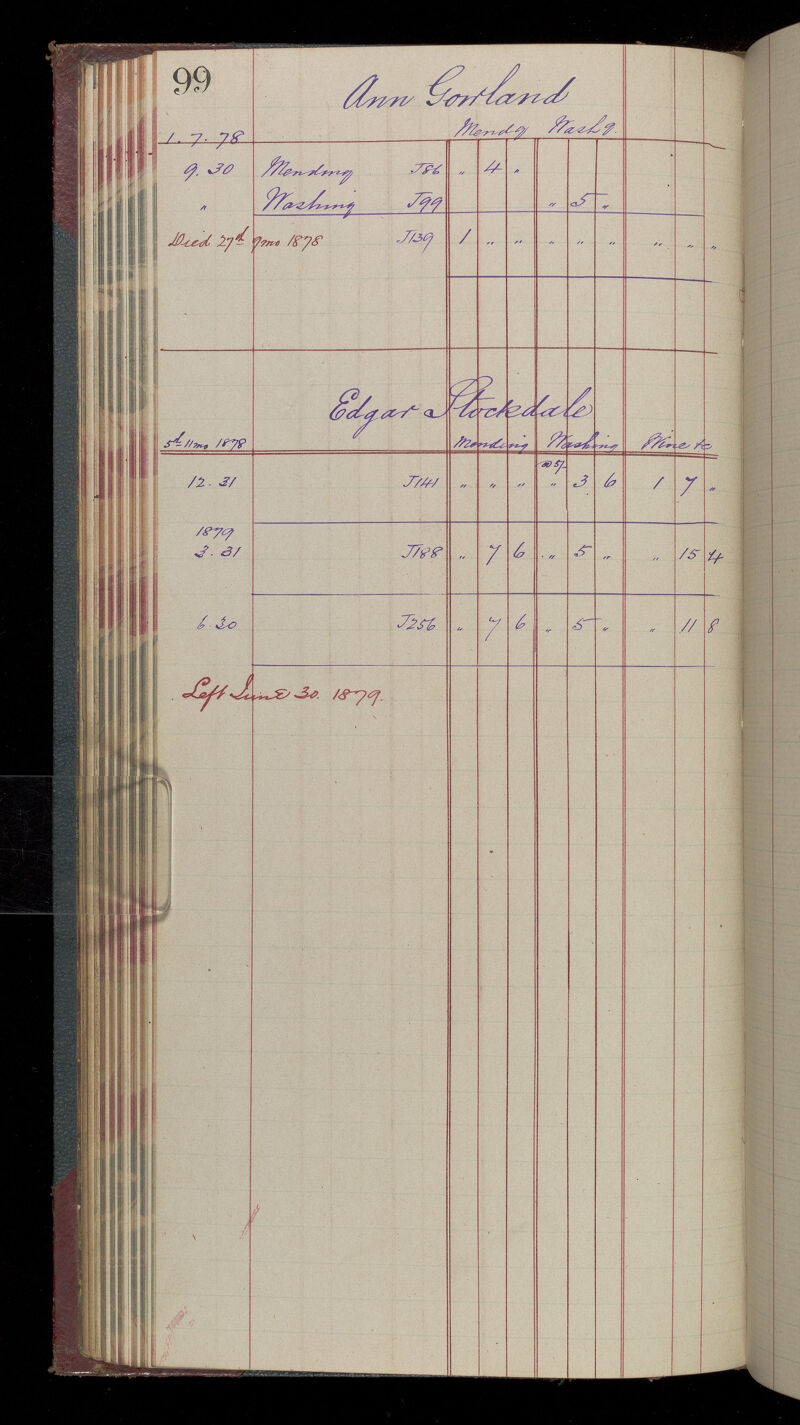 99
Ann Gowland
Mendg Washg
1.7.78
9.30 Mending J86 " 4 "
" Washing J99 " 5 "
Died 27th 9mo 1878 J139 1 " " " " " " " "
Edgar Stockdale
5th 11mo 1878 Mending Washing Wine &c
12.31 J141 " " " " 3 6 1 7 "
1879
3.31 J188 " 7 6 " 5 " " 15 4
6.30 J256 " 7 6 " 5 " " 11 8
Left June 30. 1879.